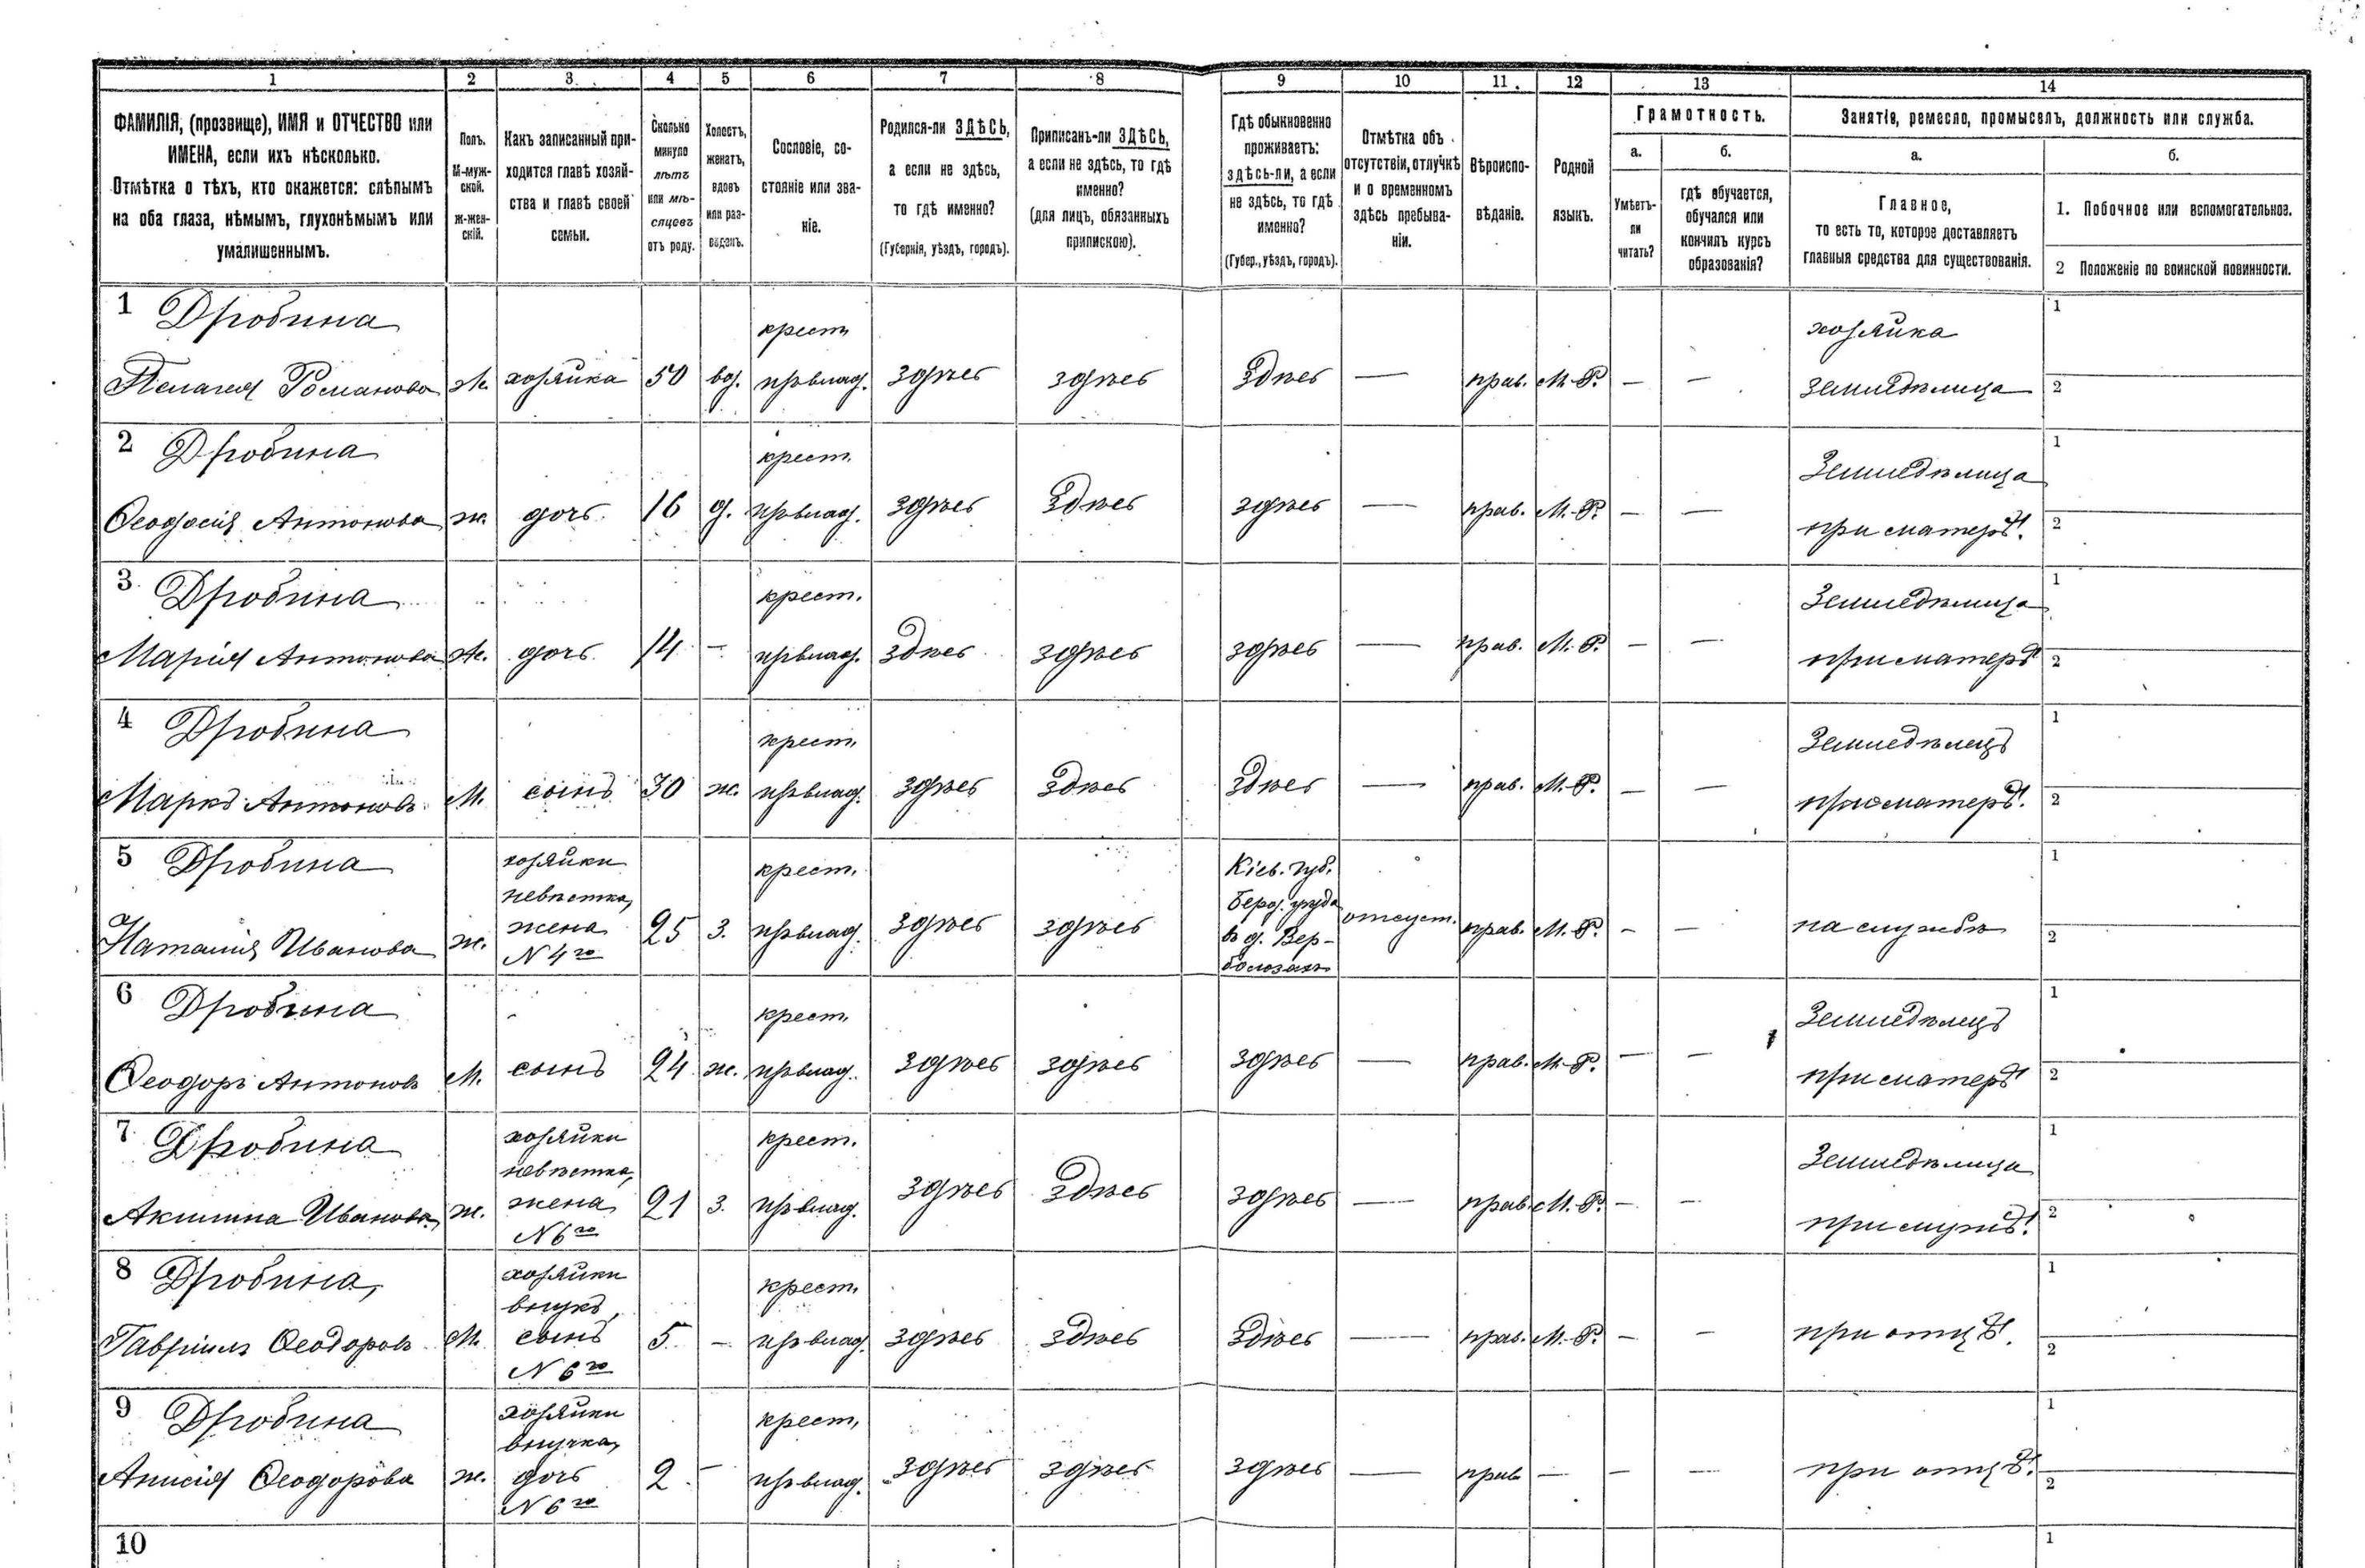 1 2 3. 4 5 6 7 8 9 10 11. 12 13 14
ФАМИЛІЯ, (прозвище), ИМЯ и ОТЧЕСТВО или
ИМЕНА, если ихъ нѣсколько.
Отмѣтка о тѣхъ, кто окажется: слѣпымъ
на оба глаза, нѣмымъ, глухонѣмымъ или
умалишеннымъ.
Полъ.
М-муж-
ской.
ж-жен-
скій.
Какъ записанный при-
ходится главѣ хозяй-
ства и главѣ своей
семьи.
Сколько
минуло
лѣтъ
или мѣ-
сяцевъ
отъ роду.
Холостъ,
женатъ,
вдовъ
или раз-
веденъ.
Сословіе, со-
стояніе или зва-
ніе.
Родился-ли ЗДѢСЬ,
а если не здѣсь,
то гдѣ именно?
(Губернія, уѣздъ, городъ).
Приписанъ-ли ЗДѢСЬ,
а если не здѣсь, то гдѣ
именно?
(для лицъ, обязанныхъ
припискою).
Гдѣ обыкновенно
проживаетъ:
здѣсь-ли, а если
не здѣсь, то гдѣ
именно?
(Губер., уѣздъ, городъ).
Отмѣтка объ
отсутствіи, отлучкѣ
и о временномъ
здѣсь пребыва-
ніи.
Вѣроиспо-
вѣданіе.
Родной
языкъ.
Грамотность.
а.
Умѣетъ-
ли
читать?
б.
гдѣ обучается,
обучался или
кончилъ курсъ
образованія?
Занятіе, ремесло, промыселъ, должность или служба.
а.
Главное,
то есть то, которое доставляетъ
главныя средства для существованія.
б.
1. Побочное или вспомогательное.
2 Положеніе по воинской повинности.
1 Дробина крест. хозяйка 1
Пелагея Романова Ж. хозяйка 50 вд. првлад. здѣсь здѣсь Здѣсь — прав. М.-Р. — — земледѣлица 2
2 Дробина крест. Земледѣлица 1
Ѳеодосія Антонова ж. дочь 16 д. првлад. здѣсь Здѣсь здѣсь — прав. М.-Р. — — при матерѣ. 2
3. Дробина крест. Земледѣлица 1
Марія Антонова Ж. дочь 14 — првлад. Здѣсь здѣсь здѣсь — прав. М.-Р. — — при матерѣ 2
4 Дробина крест. Земледѣлецъ 1
Маркъ Антоновъ М. сынъ 30 ж. првлад. здѣсь Здѣсь Здѣсь — прав. М.-Р. — — при матерѣ. 2
5 Дробина хозяйки крест. Кіев. губ. 1
невѣстка, Берд. уѣзда
Наталія Иванова ж. жена 25 з. првлад. здѣсь здѣсь въ д. Вер- отсуст. прав. М.-Р. — — на службѣ 2
N 4го болозахъ
6 Дробина крест. Земледѣлецъ 1
Ѳеодоръ Антоновъ М. сынъ 24 ж. првлад. здѣсь здѣсь здѣсь — прав. М.-Р. — — при матерѣ 2
7 Дробина хозяйки крест. Земледѣлица 1
невѣстка,
Акилина Иванова ж. жена 21 з. првлад. здѣсь Здѣсь здѣсь — прав. М.-Р. — — при мужѣ. 2
N 6го
8 Дробина, хозяйки крест. 1
внукъ,
Гавріилъ Ѳеодоровъ М. сынъ 5. — првлад. здѣсь здѣсь Здѣсь — прав. М.-Р. — — при отцѣ. 2
N 6го
9 Дробина хозяйки крест. 1
внучка,
Анисія Ѳеодорова ж. дочь 2 — првлад. здѣсь здѣсь здѣсь — прав — — — при отцѣ. 2
N 6го
10 1